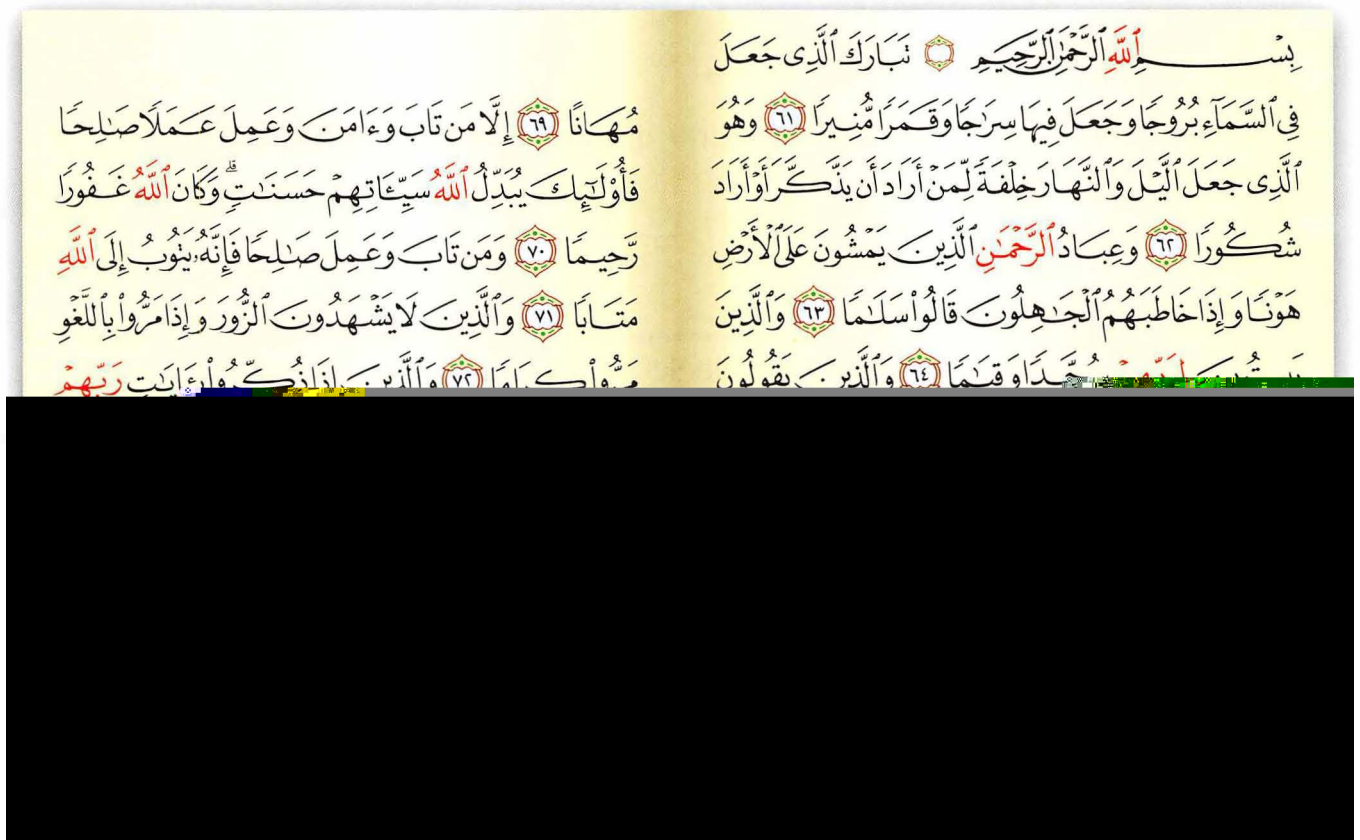 بِسْمِ ٱللَّهِ ٱلرَّحْمَٰنِ ٱلرَّحِيمِ تَبَارَكَ ٱلَّذِى جَعَلَ
فِى ٱلسَّمَآءِ بُرُوجًا وَجَعَلَ فِيهَا سِرَٰجًا وَقَمَرًا مُّنِيرًا ٦١ وَهُوَ
ٱلَّذِى جَعَلَ ٱلَّيْلَ وَٱلنَّهَارَ خِلْفَةً لِّمَنْ أَرَادَ أَن يَذَّكَّرَ أَوْ أَرَادَ
شُكُورًا ٦٢ وَعِبَادُ ٱلرَّحْمَٰنِ ٱلَّذِينَ يَمْشُونَ عَلَى ٱلْأَرْضِ
هَوْنًا وَإِذَا خَاطَبَهُمُ ٱلْجَٰهِلُونَ قَالُوا۟ سَلَٰمًا ٦٣ وَٱلَّذِينَ
لِرَبِّهِمْ سُجَّدًا وَقِيَٰمًا ٦٤ وَٱلَّذِينَ يَقُولُونَ
مُهَانًا ٦٩ إِلَّا مَن تَابَ وَءَامَنَ وَعَمِلَ عَمَلًا صَٰلِحًا
فَأُو۟لَٰٓئِكَ يُبَدِّلُ ٱللَّهُ سَيِّـَٔاتِهِمْ حَسَنَٰتٍ ۗ وَكَانَ ٱللَّهُ غَفُورًا
رَّحِيمًا ٧٠ وَمَن تَابَ وَعَمِلَ صَٰلِحًا فَإِنَّهُۥ يَتُوبُ إِلَى ٱللَّهِ
مَتَابًا ٧١ وَٱلَّذِينَ لَا يَشْهَدُونَ ٱلزُّورَ وَإِذَا مَرُّوا۟ بِٱللَّغْوِ
مَرُّوا۟ كِرَامًا ٧٢ وَٱلَّذِينَ إِذَا ذُكِّرُوا۟ بِـَٔايَٰتِ رَبِّهِمْ